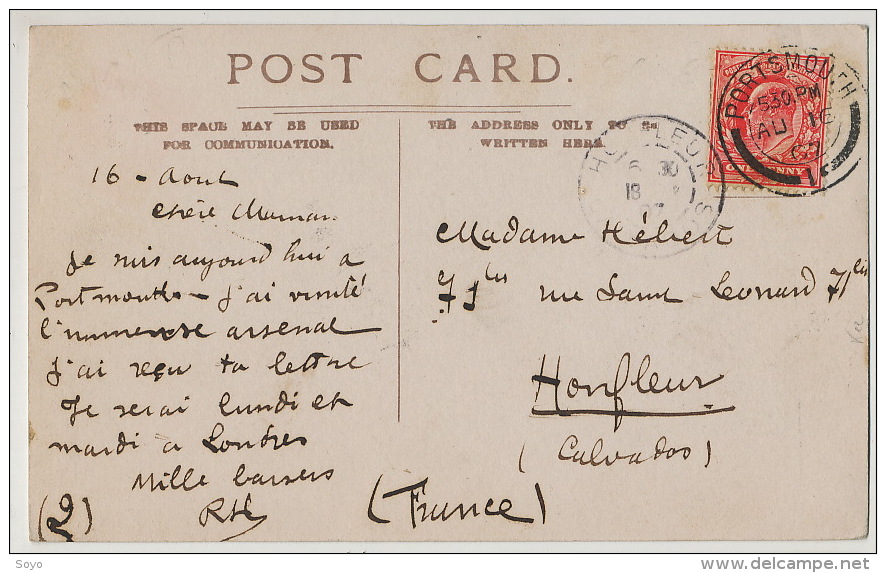 POST CARD.
THIS SPACE MAY BE USED
FOR COMMUNICATION.
THE ADDRESS ONLY TO BE
WRITTEN HERE.
16 - Aout
Chère Maman
Je suis aujourd'hui a
Portmouth - J'ai visité
l'immense arsenal
J'ai reçu ta lettre
Je serai lundi et
mardi a Londres
Mille baisers
RH
(2)
Madame Hébert
71 bis rue Saint Leonard 71 bis
Honfleur
(Calvados)
(France)
PORTSMOUTH
5 30 PM
AU 16
07
1
HONFLEUR
6 30
18
ONE PENNY
Soyo
delcampe.net